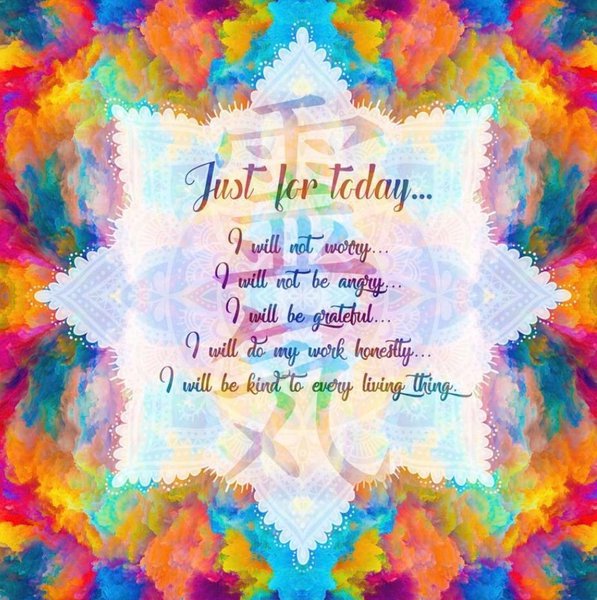 Just for today...
I will not worry...
I will not be angry...
I will be grateful...
I will do my work honestly...
I will be kind to every living thing.
靈
氣